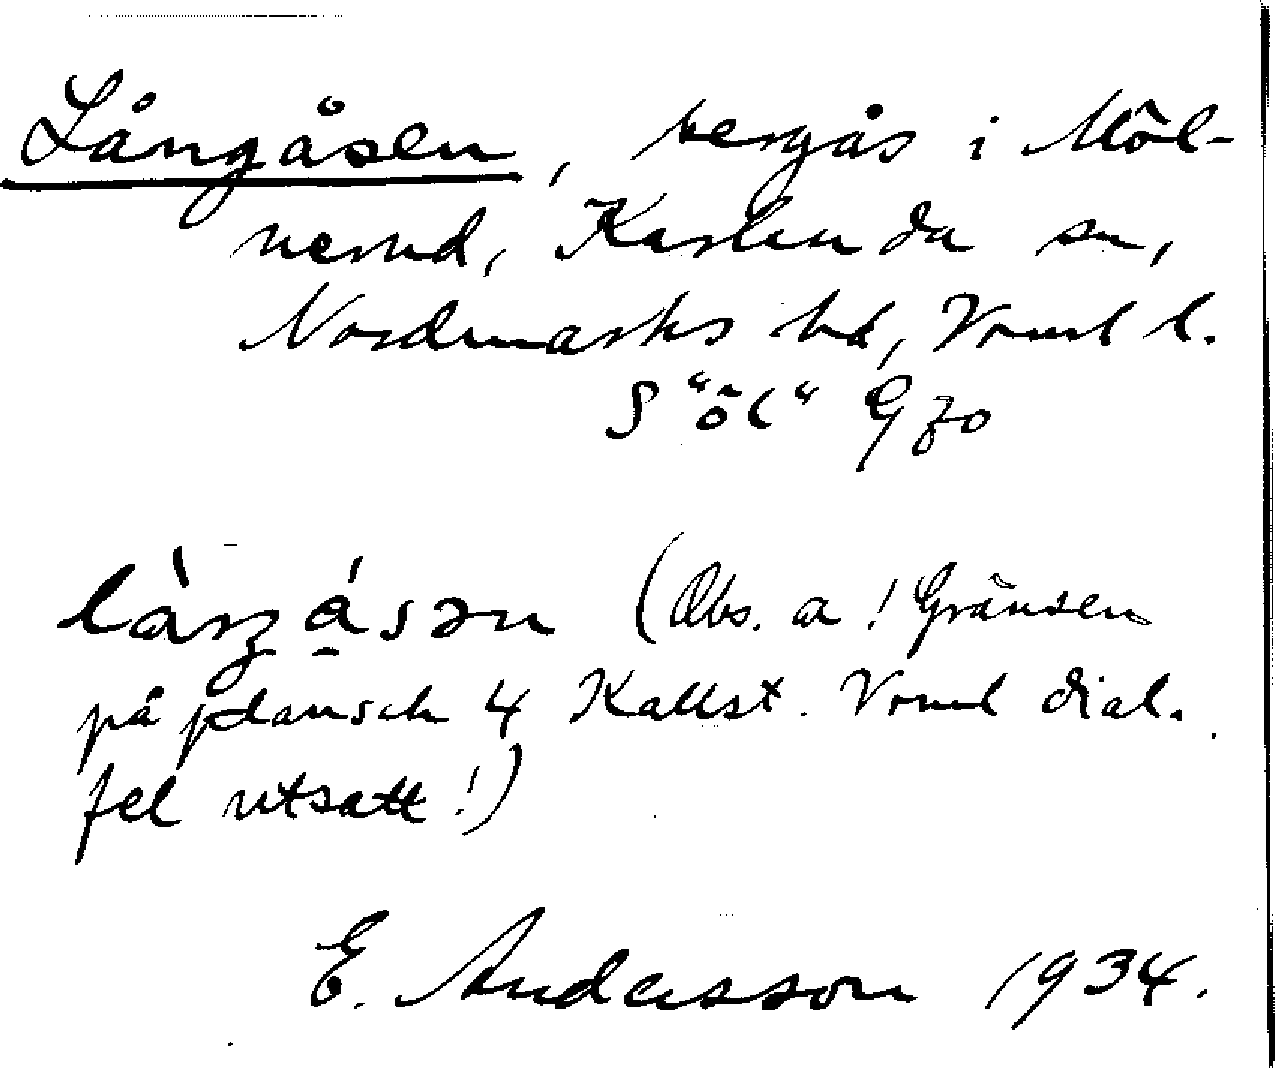 Långåsen, bergås i Möl-
nerud, Karlanda sn,
Nordmarks hd, Vrml l.
S "öl" G 70
làŋá̱sən (Obs. a! Gränsen
på plansch 4 Kallst. Vrml dial.
fel utsatt!)
E. Andersson 1934.